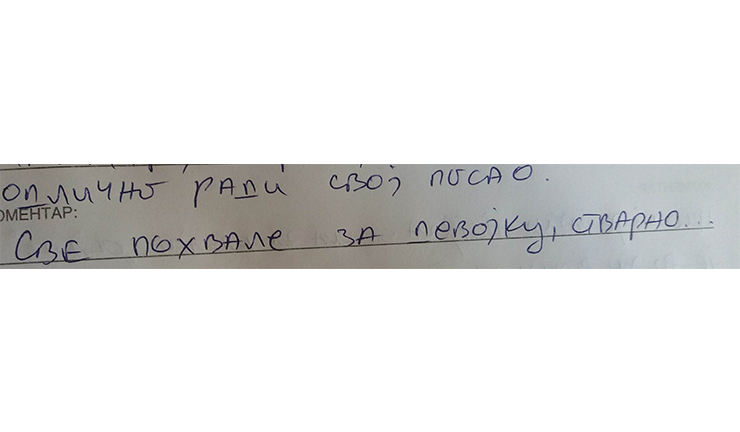 одлично ради свој посао.
ОМЕНТАР:
Све похвале за девојку, стварно...